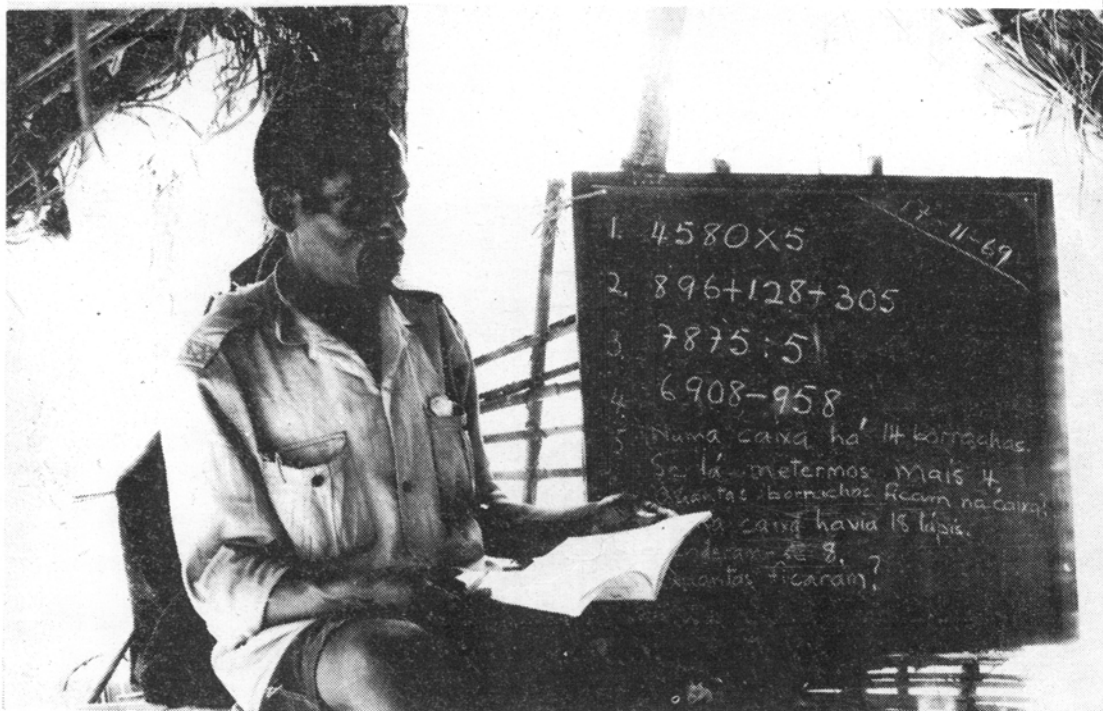 17-11-69
1. 4580×5
2. 896+128+305
3. 7875:5
4. 6908-958
5. Numa caixa há 14 borrachas.
Se lá metermos mais 4
Quantas borrachas ficam na caixa?
caixa havia 18 lápis.
8.
Quantos ficaram?